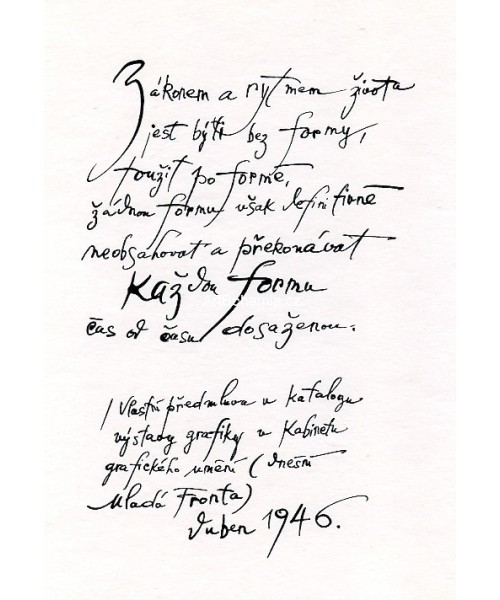 Zákonem a rytmem života
jest býti bez formy,
toužit po formě,
žádnou formu však definitivně
neobsahovat a překonávat
každou formu
čas od času dosaženou.
/ Vlastní předmluva v katalogu
výstavy grafiky v Kabinetu
grafického umění (dnešní
Mladá Fronta)
duben 1946.